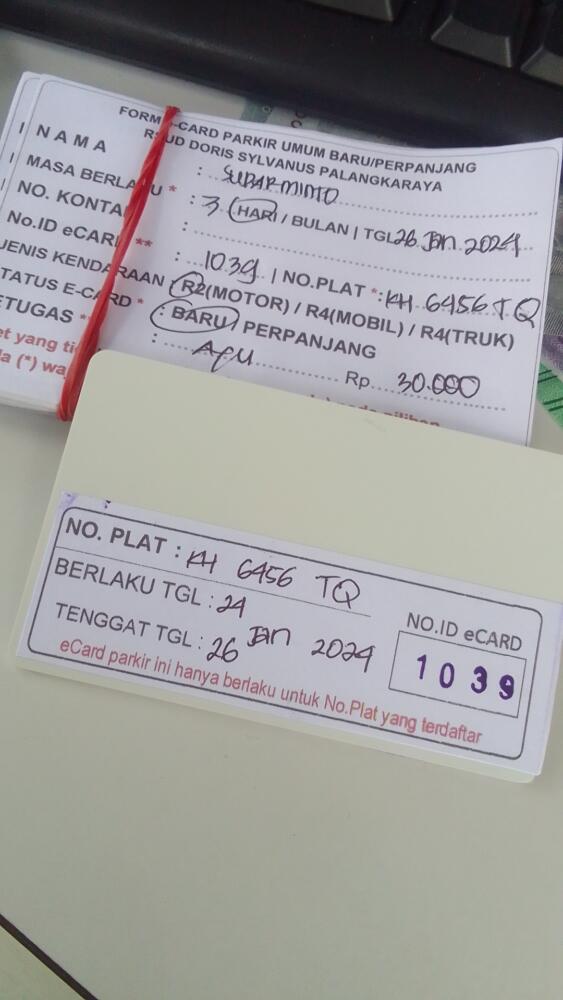 FORM E-CARD PARKIR UMUM BARU/PERPANJANG
RSUD DORIS SYLVANUS PALANGKARAYA
NAMA : SUDARMINTO
MASA BERLAKU * : 3 (HARI / BULAN | TGL 26 Jan 2024
NO. KONTAK :
No.ID eCARD ** : 1039 | NO.PLAT *: KH 6456 TQ
JENIS KENDARAAN : R2(MOTOR) / R4(MOBIL) / R4(TRUK)
STATUS E-CARD * : BARU / PERPANJANG
PETUGAS ** : Ayu Rp. 30.000
NO. PLAT : KH 6456 TQ
BERLAKU TGL : 24
TENGGAT TGL : 26 Jan 2024
NO.ID eCARD
1039
eCard parkir ini hanya berlaku untuk No.Plat yang terdaftar